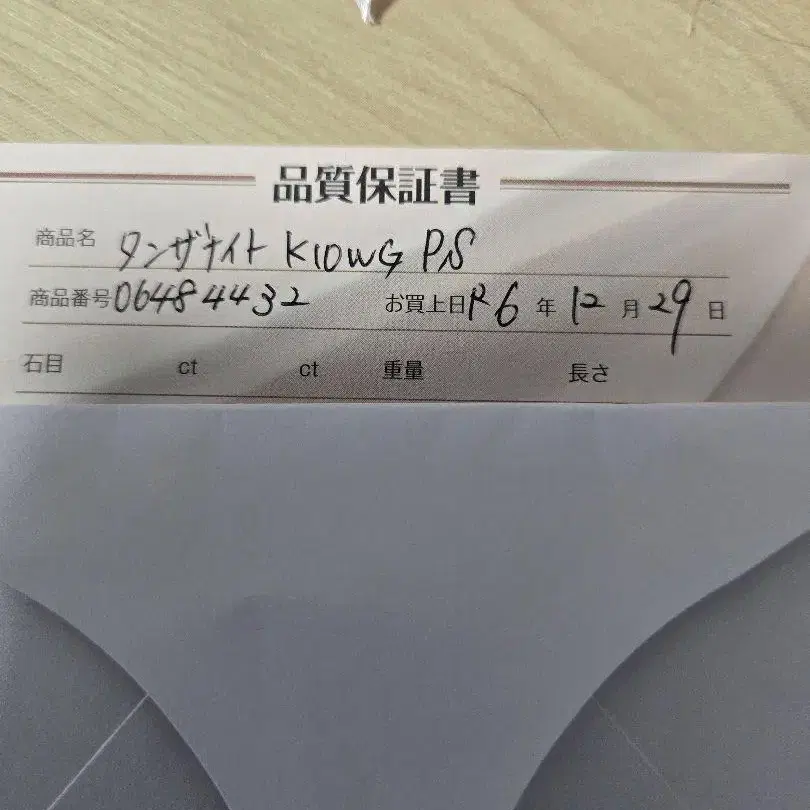 品質保証書
商品名 タンザナイト K10WG P/S
商品番号 06484432 お買上日 R6年12月29日
石目 ct ct 重量 長さ